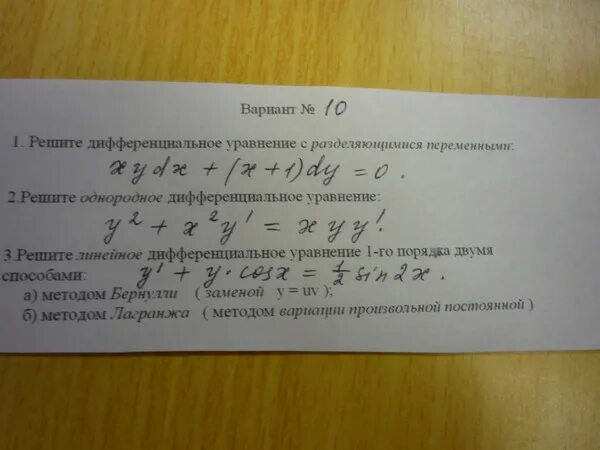 Вариант № 10
1. Решите дифференциальное уравнение с разделяющимися переменными:
xydx + (x+1)dy = 0 .
2.Решите однородное дифференциальное уравнение:
y² + x²y' = xyy'.
3.Решите линейное дифференциальное уравнение 1-го порядка двумя
способами: y' + y·cosx = ½ sin2x .
а) методом Бернулли ( заменой y = uv );
б) методом Лагранжа ( методом вариации произвольной постоянной )